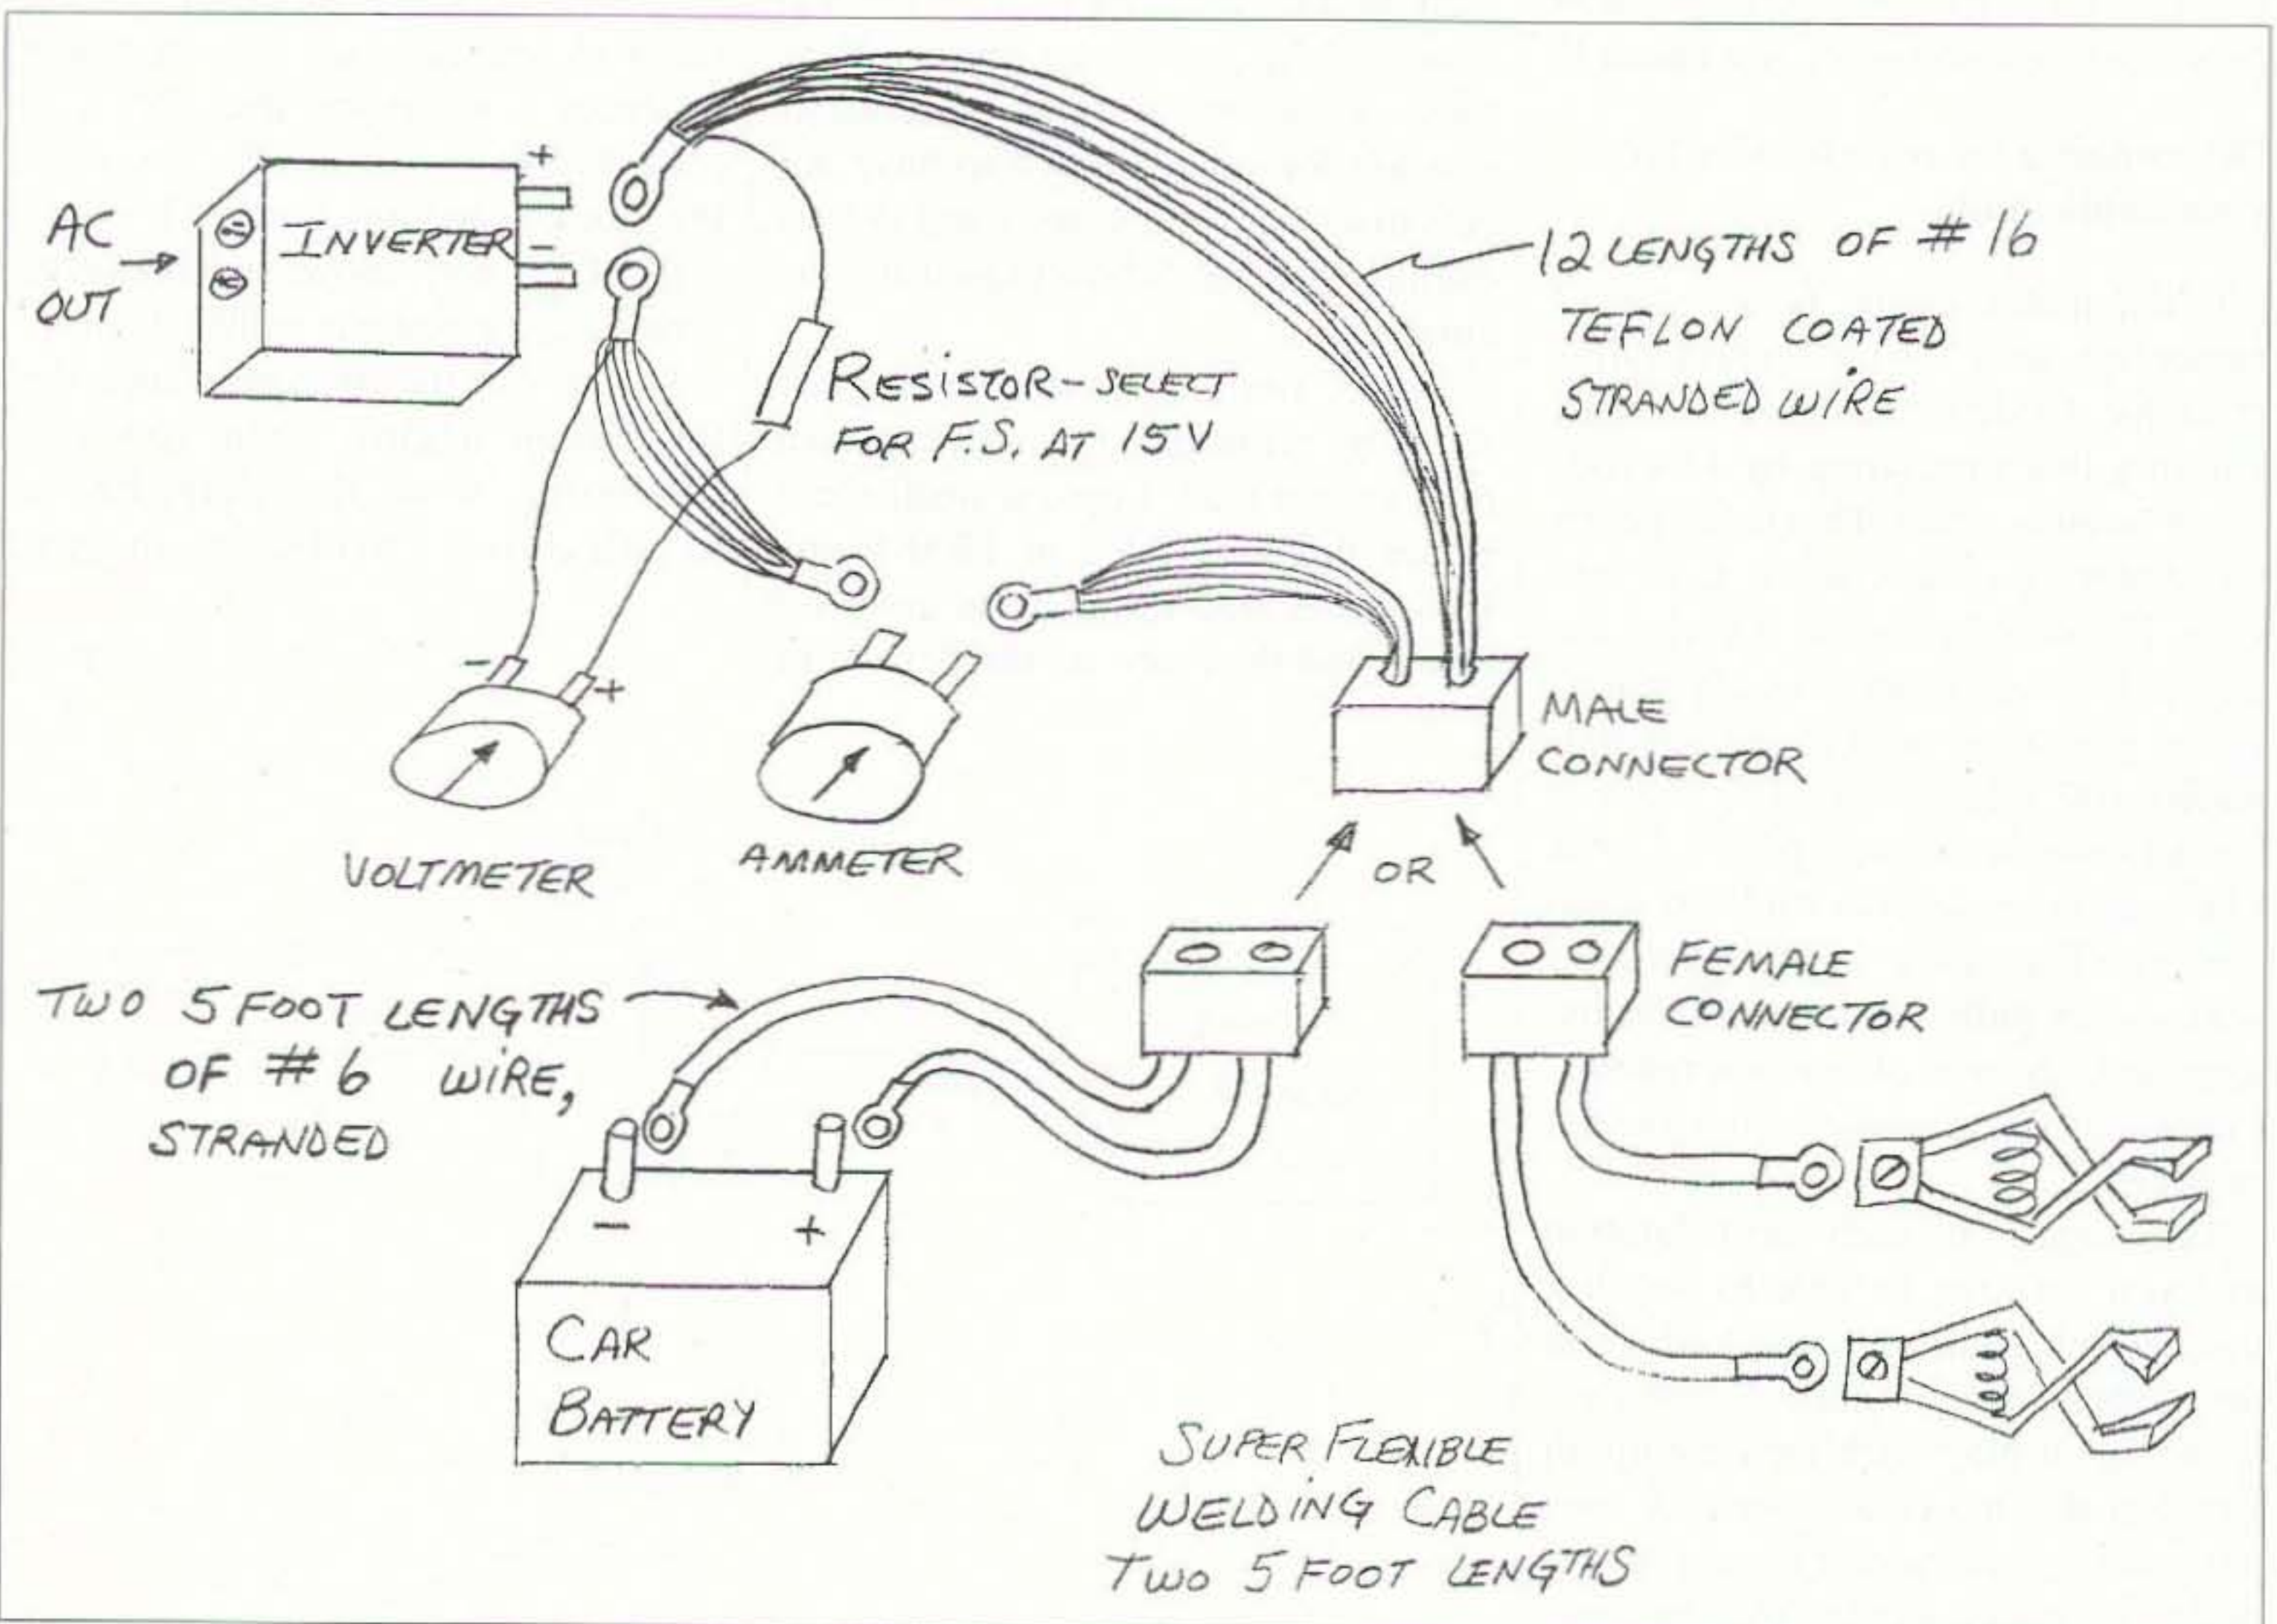 AC
OUT
INVERTER
+
-
12 LENGTHS OF #16
TEFLON COATED
STRANDED WIRE
RESISTOR - SELECT
FOR F.S. AT 15V
-
+
VOLTMETER
AMMETER
MALE
CONNECTOR
OR
FEMALE
CONNECTOR
TWO 5 FOOT LENGTHS
OF #6 WIRE,
STRANDED
- +
CAR
BATTERY
SUPER FLEXIBLE
WELDING CABLE
TWO 5 FOOT LENGTHS